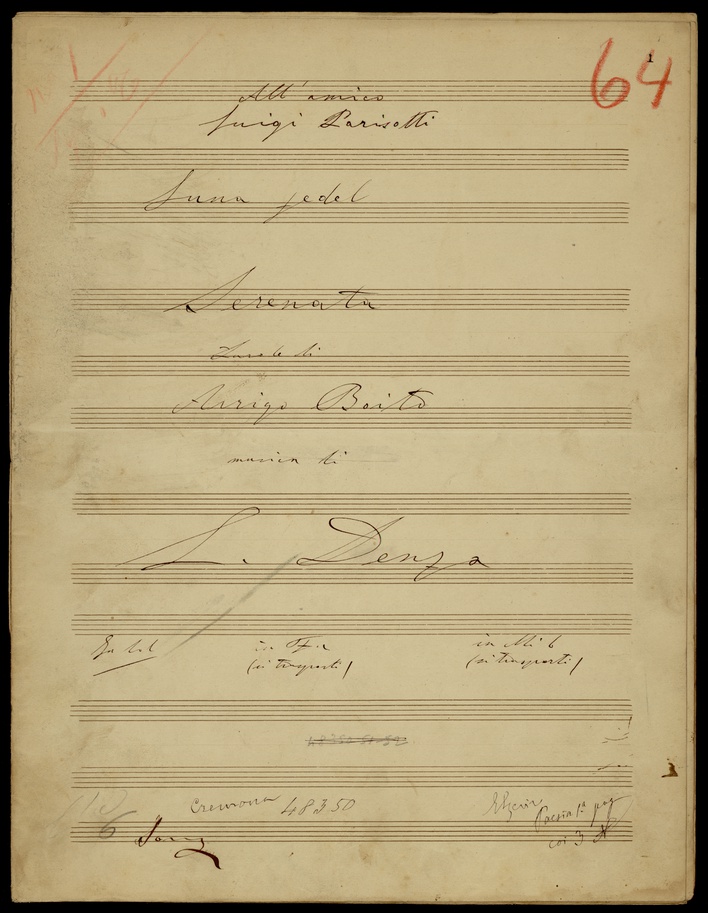 64
1
All' amico
Luigi Parisotti
Luna fedel
Serenata
Parole di
Arrigo Boito
musica di
L. Denza
in Fa
in Mi b
(si trasporti)
(si trasporti)
Cremona 48350
Elzevir
Poesia 1ª pag
coi 3
6